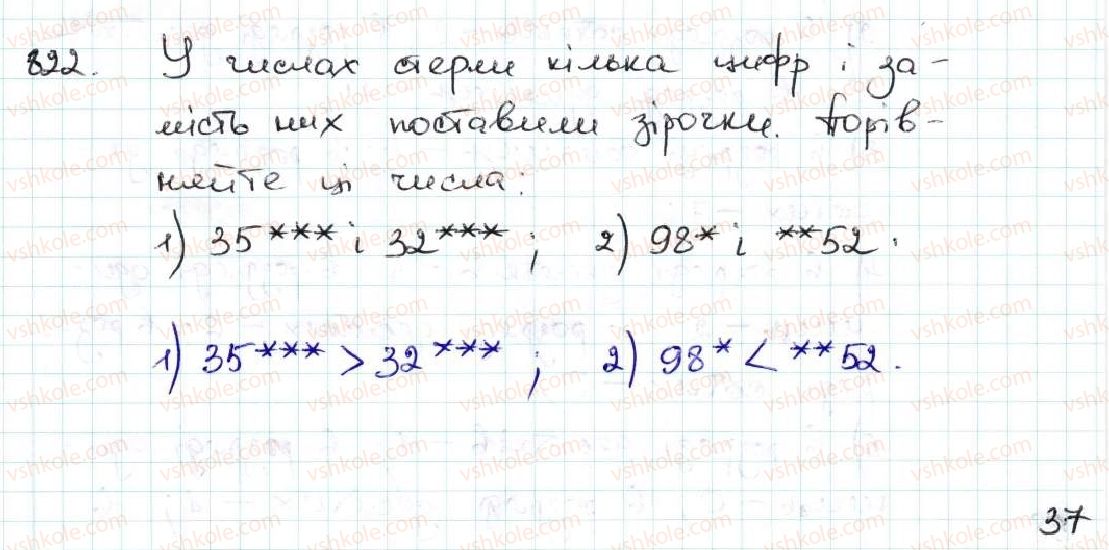 822. У числах стерли кілька цифр і за-
мість них поставили зірочки. Порів-
няйте ці числа:
1) 35*** і 32*** ; 2) 98* і **52.
1) 35*** > 32*** ; 2) 98* < **52.
37